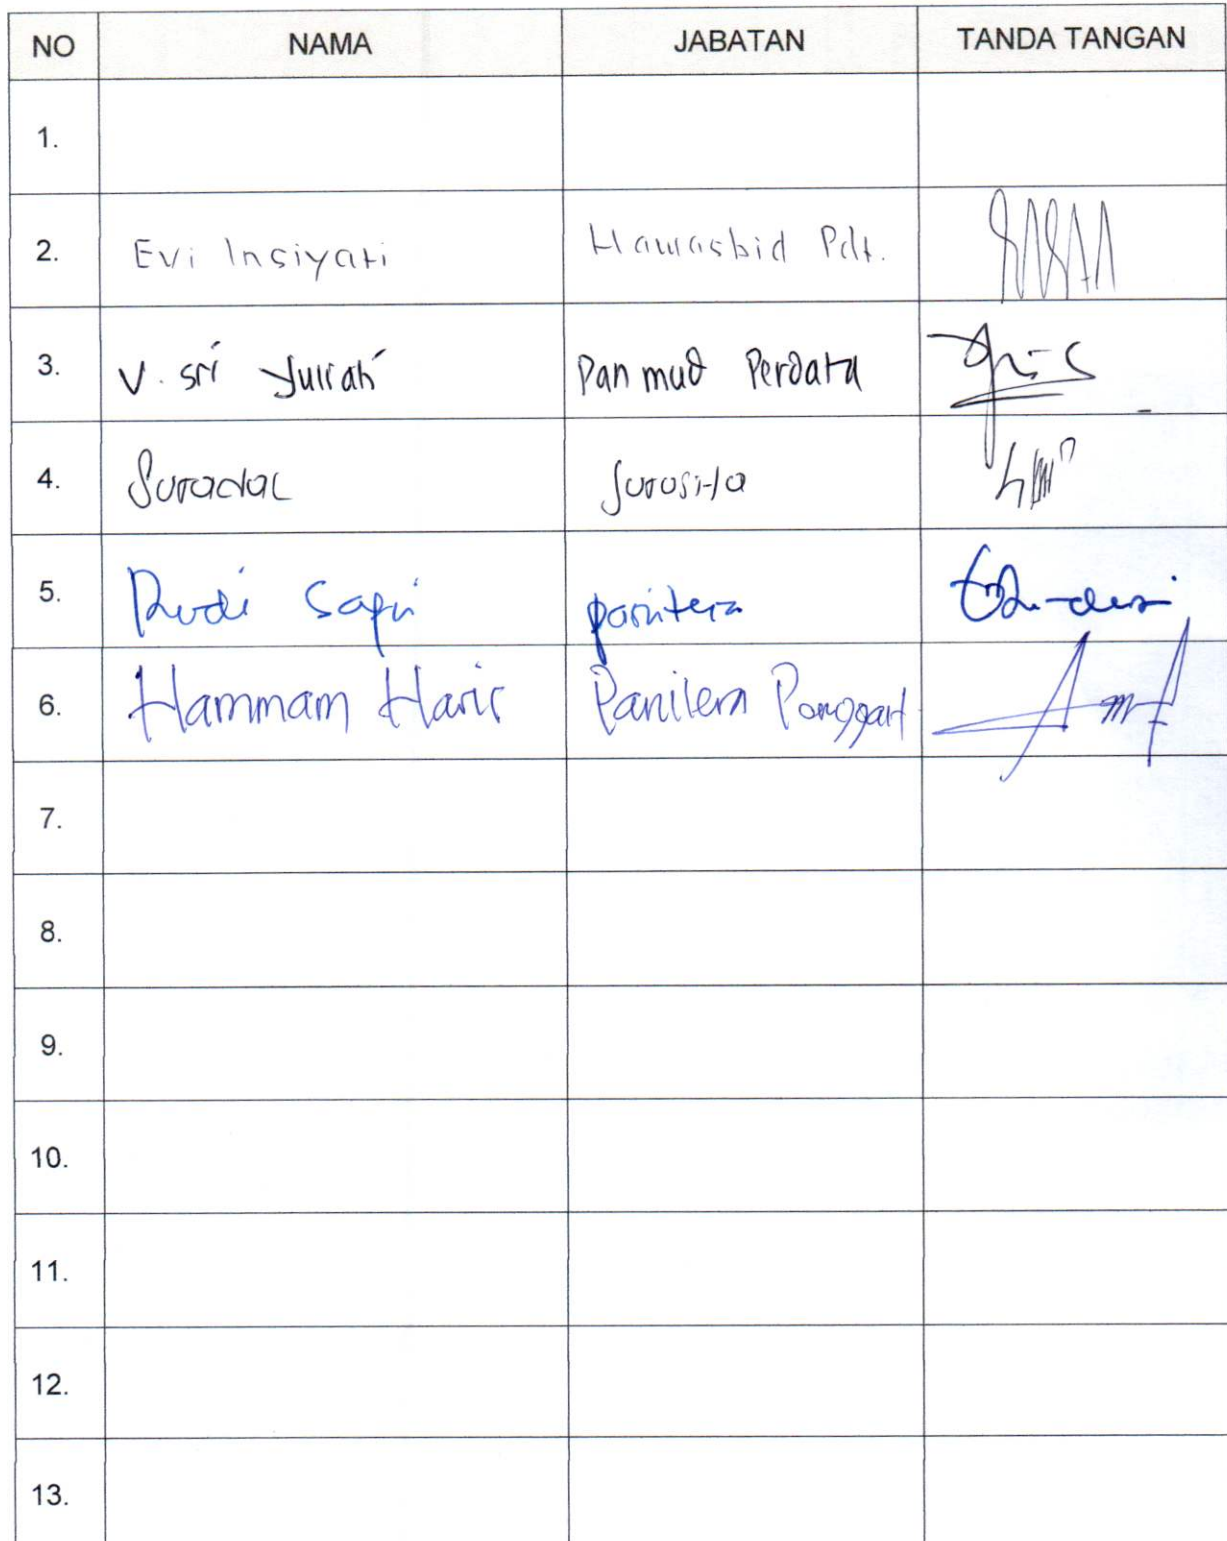 NO NAMA JABATAN TANDA TANGAN
1.
2. Evi Insiyati Hawasbid Pdt.
3. V. Sri Yuliah Panmud Perdata
4. Suradal Jurusita
5. Rudi Safri panitera
6. Hammam Haris Panitera Pengganti
7.
8.
9.
10.
11.
12.
13.